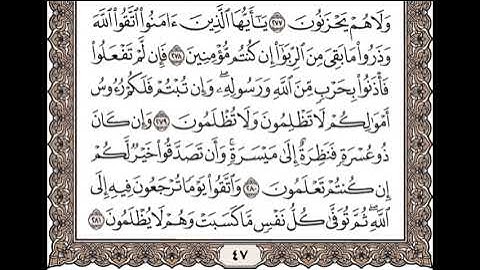 وَلَا هُمْ يَحْزَنُونَ ٢٧٧ يَٰٓأَيُّهَا ٱلَّذِينَ ءَامَنُوا۟ ٱتَّقُوا۟ ٱللَّهَ
وَذَرُوا۟ مَا بَقِىَ مِنَ ٱلرِّبَوٰٓا۟ إِن كُنتُم مُّؤْمِنِينَ ٢٧٨ فَإِن لَّمْ تَفْعَلُوا۟
فَأْذَنُوا۟ بِحَرْبٍ مِّنَ ٱللَّهِ وَرَسُولِهِۦ ۖ وَإِن تُبْتُمْ فَلَكُمْ رُءُوسُ
أَمْوَٰلِكُمْ لَا تَظْلِمُونَ وَلَا تُظْلَمُونَ ٢٧٩ وَإِن كَانَ
ذُو عُسْرَةٍ فَنَظِرَةٌ إِلَىٰ مَيْسَرَةٍ ۚ وَأَن تَصَدَّقُوا۟ خَيْرٌ لَّكُمْ
إِن كُنتُمْ تَعْلَمُونَ ٢٨٠ وَٱتَّقُوا۟ يَوْمًا تُرْجَعُونَ فِيهِ إِلَى
ٱللَّهِ ۖ ثُمَّ تُوَفَّىٰ كُلُّ نَفْسٍ مَّا كَسَبَتْ وَهُمْ لَا يُظْلَمُونَ ٢٨١
٤٧